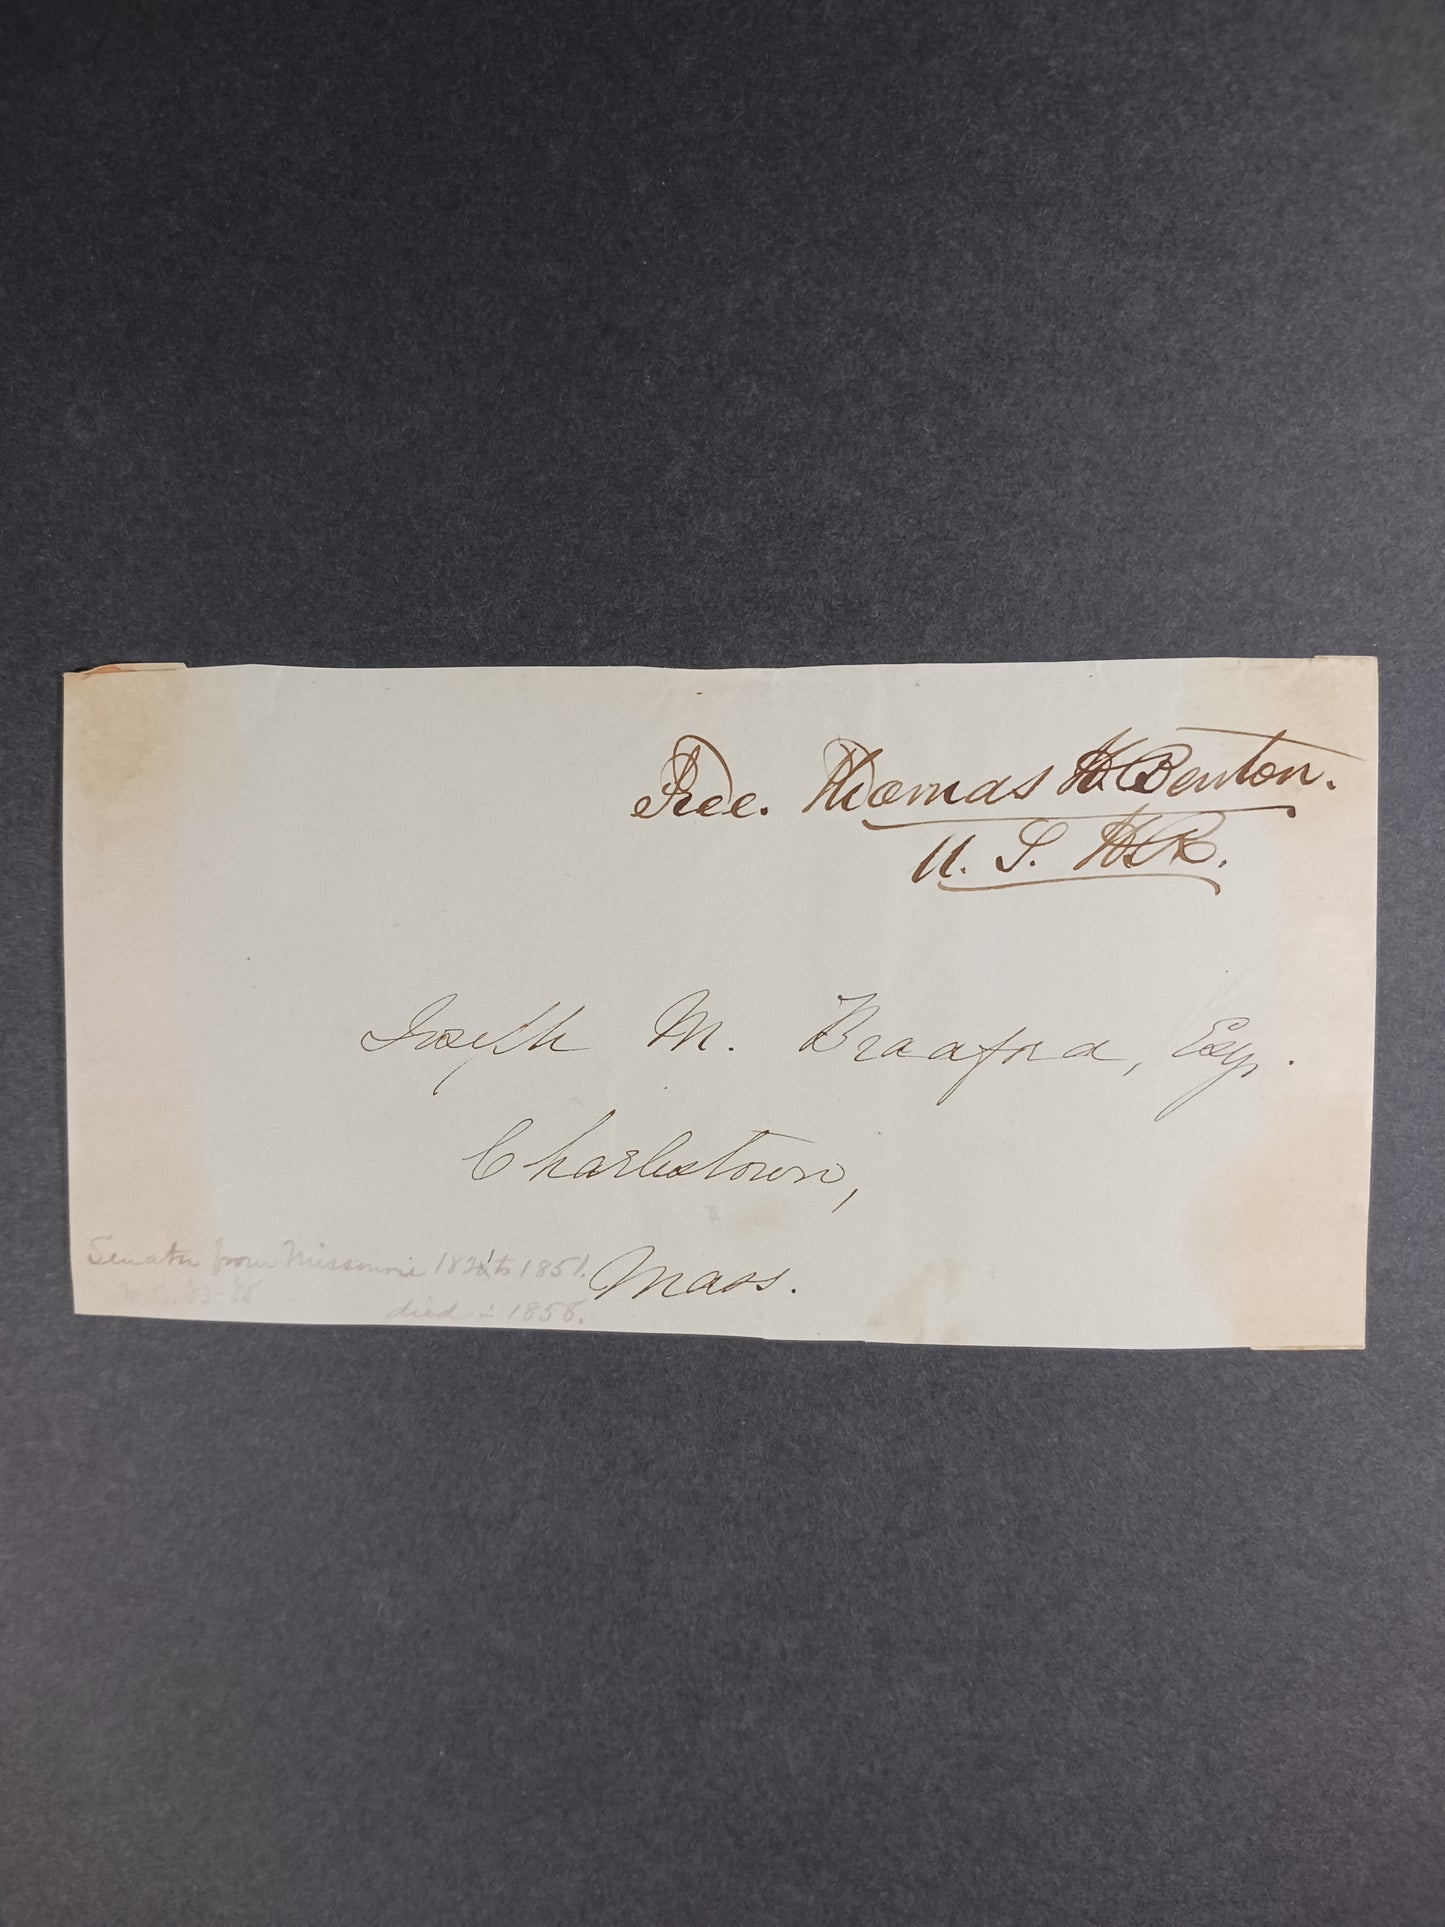 Free. Thomas H. Benton.
U. S. H.R.
Joseph M. Bradford, Esq.
Charlestown,
Mass.
Senator from Missourie 1821 to 1851.
died in 1858.